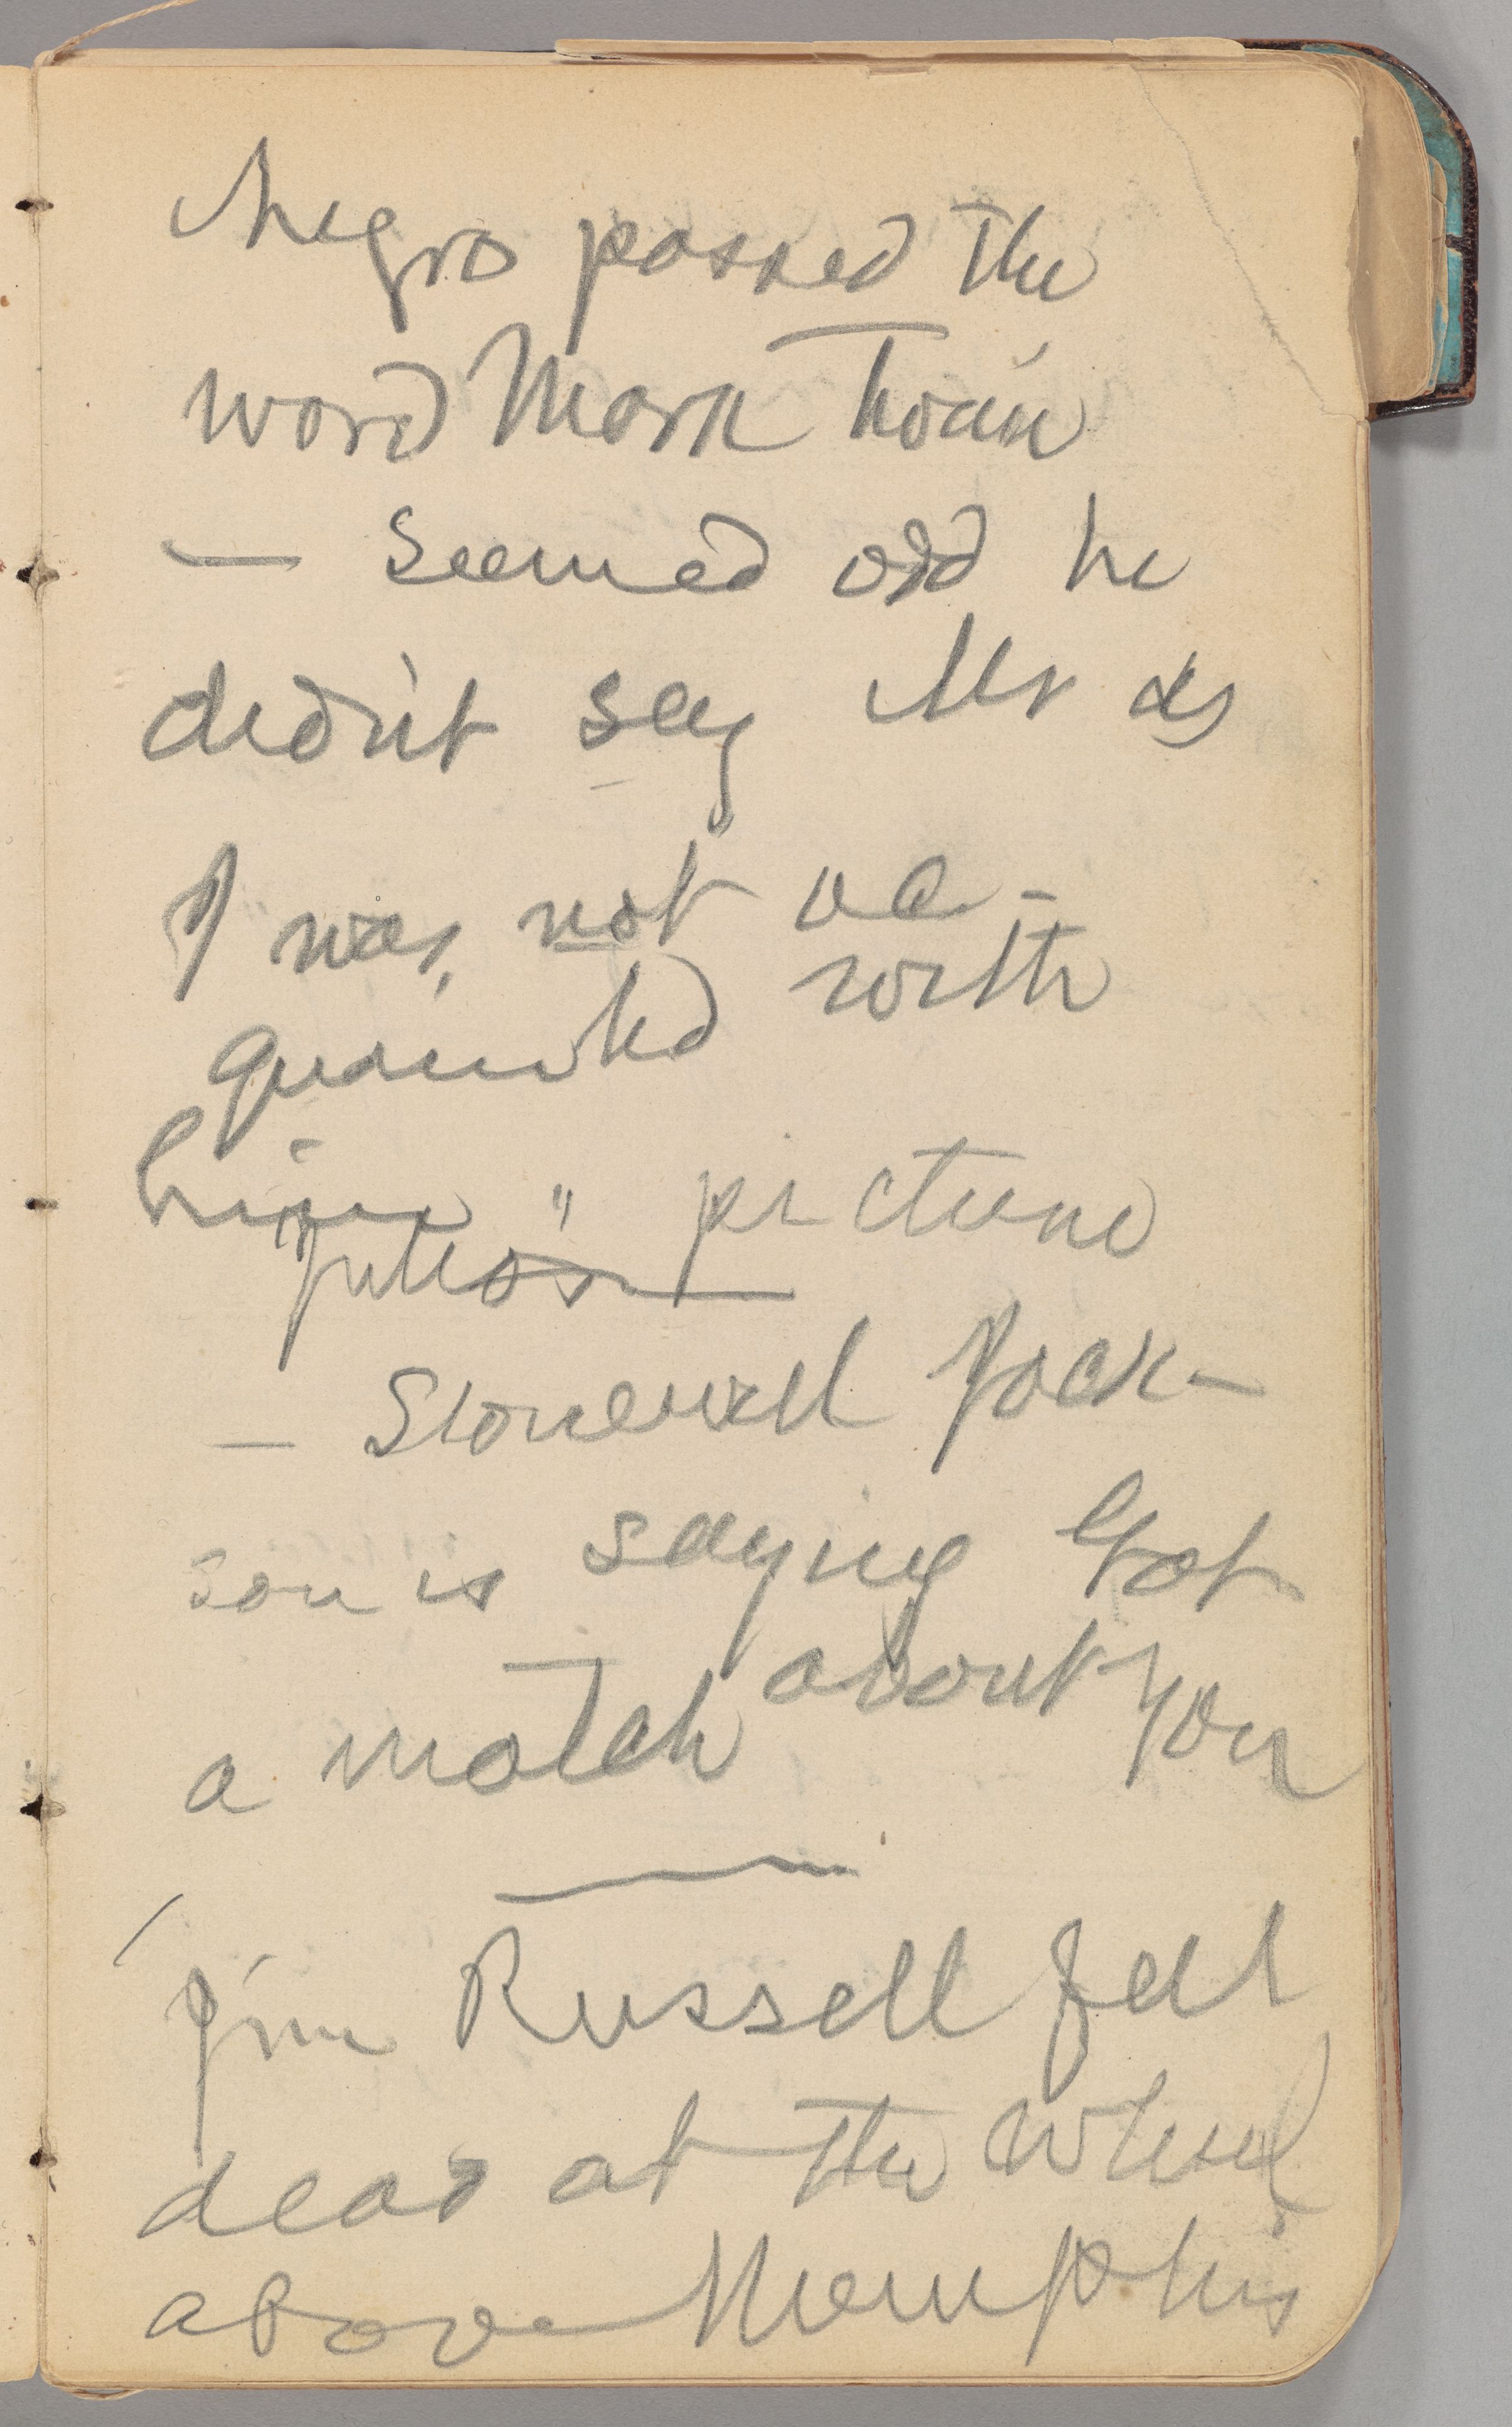 Negro passed the
word Mark Twain
— seemed odd he
didn't say Mr as
I was not ac-
quainted with
him " picture
— Stonewall Jack-
son is saying Got
a match about you
Jim Russell fell
dead at the wheel
above Memphis